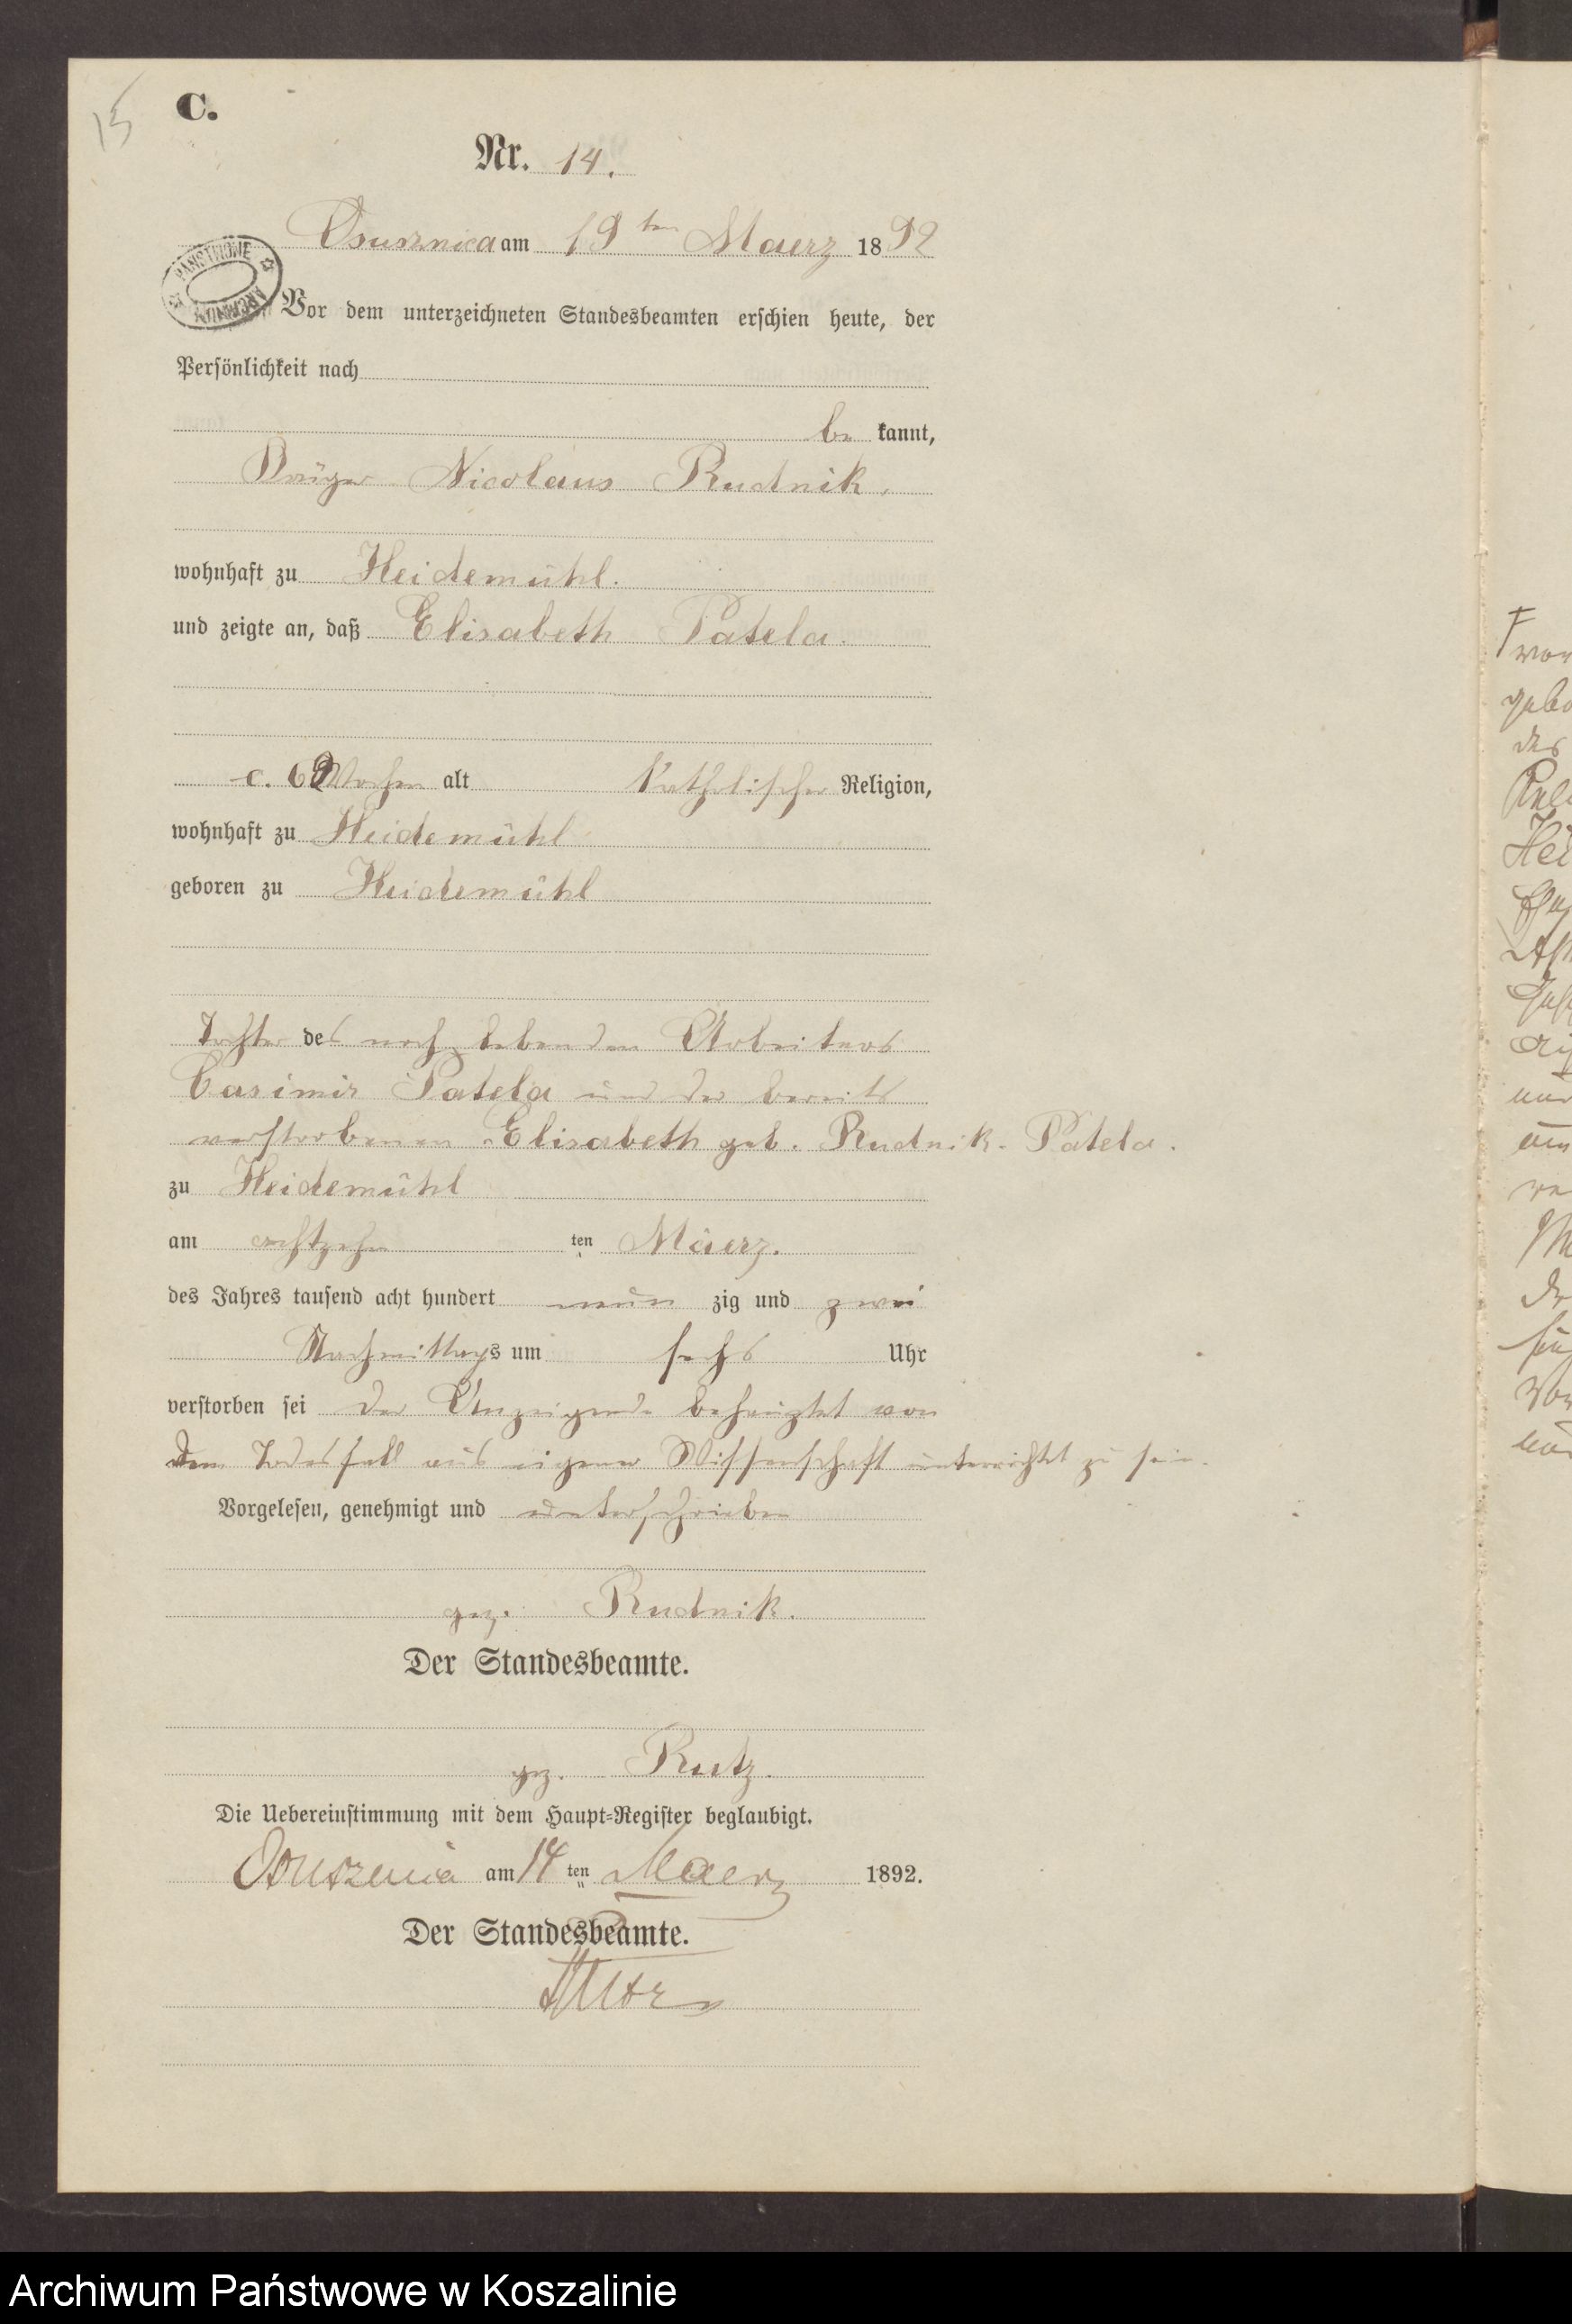 15
C.
Nr. 14.
Osusznica am 19ten Maerz 1892
PAŃSTWOWE ARCHIWUM
Vor dem unterzeichneten Standesbeamten erschien heute, der
Persönlichkeit nach
be kannt,
Nicolaus Rudnik.
wohnhaft zu Heidemühl.
und zeigte an, daß Elisabeth Patela.
c. Wochen alt Katholischer Religion,
wohnhaft zu Heidemühl
geboren zu Heidemühl
Tochter des noch lebenden Arbeiters
Casimir Patela und der bereits
verstorbenen Elisabeth geb. Rudnik-Patela.
zu Heidemühl
am achtzehn ten Maerz.
des Jahres tausend acht hundert neun zig und zwei
Nachmittags um sechs Uhr
verstorben sei der Anzeigende von
dem Todesfall aus eigener Wissenschaft unterrichtet zu sein.
Vorgelesen, genehmigt und unterschrieben
gez. Rudnik.
Der Standesbeamte.
gez. Rutz.
Die Uebereinstimmung mit dem Haupt-Register beglaubigt.
Osusznica am ten Maerz 1892.
Der Standesbeamte.
Rutz
Archiwum Państwowe w Koszalinie